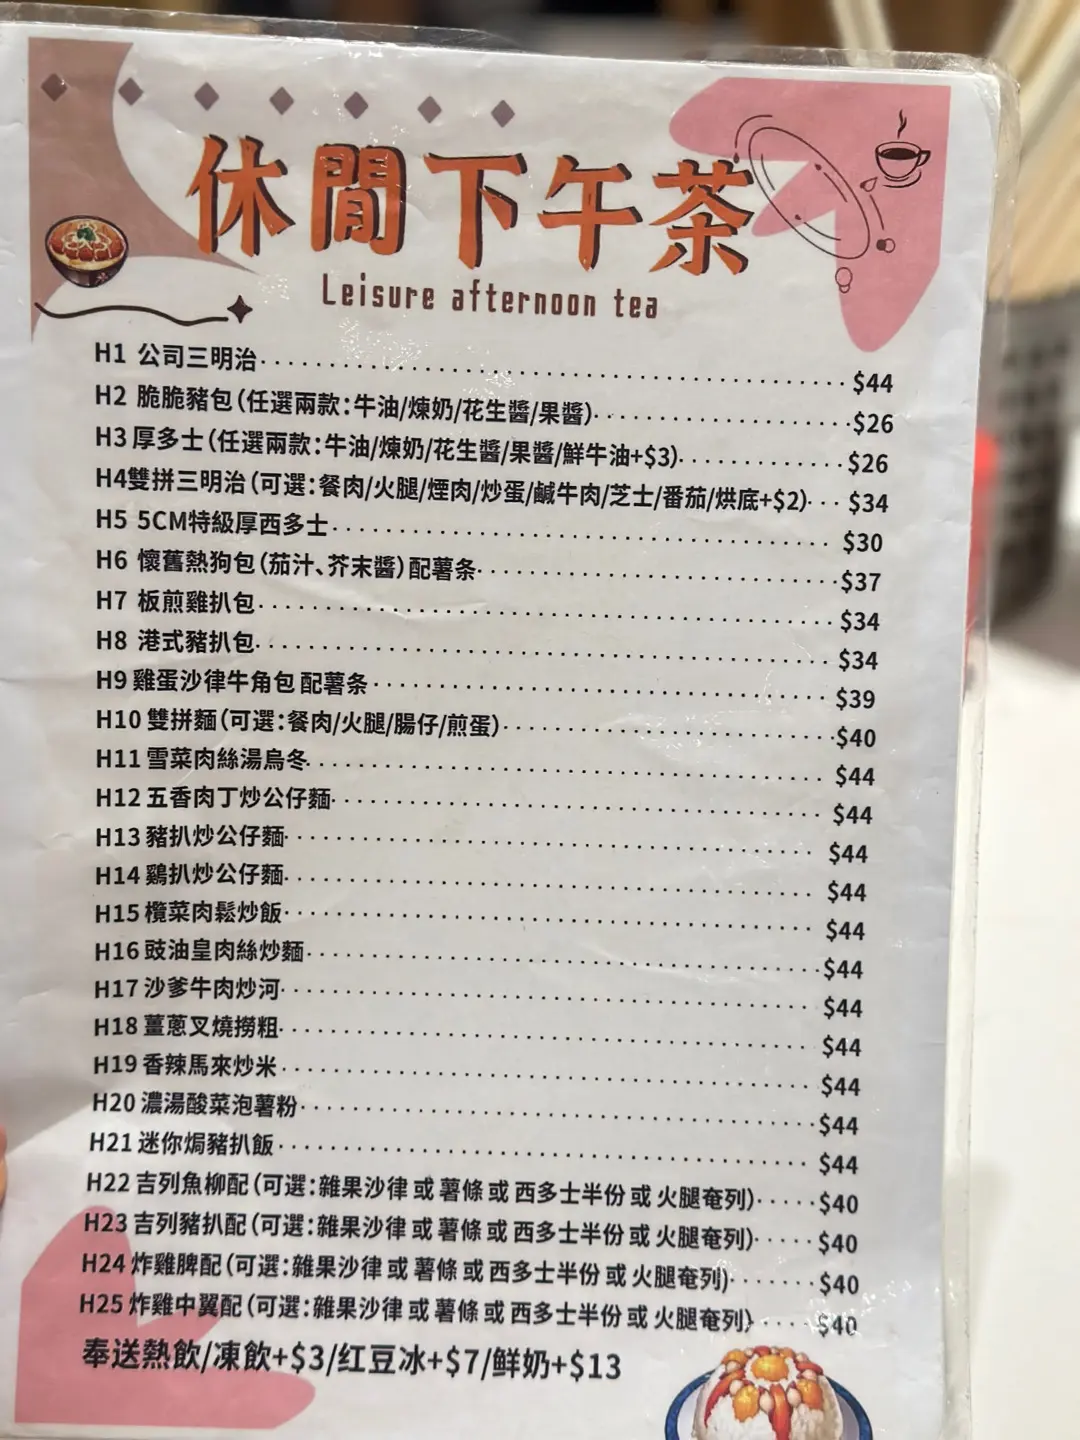 休閒下午茶
Leisure afternoon tea
H1 公司三明治 $44
H2 脆脆豬包(任選兩款:牛油/煉奶/花生醬/果醬) $26
H3 厚多士(任選兩款:牛油/煉奶/花生醬/果醬/鮮牛油+$3) $26
H4雙拼三明治(可選:餐肉/火腿/煙肉/炒蛋/鹹牛肉/芝士/番茄/烘底+$2) $34
H5 5CM特級厚西多士 $30
H6 懷舊熱狗包(茄汁、芥末醬)配薯条 $37
H7 板煎雞扒包 $34
H8 港式豬扒包 $34
H9 雞蛋沙律牛角包 配薯条 $39
H10 雙拼麵(可選:餐肉/火腿/腸仔/煎蛋) $40
H11 雪菜肉絲湯烏冬 $44
H12 五香肉丁炒公仔麵 $44
H13 豬扒炒公仔麵 $44
H14 鷄扒炒公仔麵 $44
H15 欖菜肉鬆炒飯 $44
H16 豉油皇肉絲炒麵 $44
H17 沙爹牛肉炒河 $44
H18 薑蔥叉燒撈粗 $44
H19 香辣馬來炒米 $44
H20 濃湯酸菜泡薯粉 $44
H21 迷你焗豬扒飯 $44
H22 吉列魚柳配(可選:雜果沙律 或 薯條 或 西多士半份 或 火腿奄列) $40
H23 吉列豬扒配(可選:雜果沙律 或 薯條 或 西多士半份 或 火腿奄列) $40
H24 炸雞脾配(可選:雜果沙律 或 薯條 或 西多士半份 或 火腿奄列) $40
H25 炸雞中翼配(可選:雜果沙律 或 薯條 或 西多士半份 或 火腿奄列) $40
奉送熱飲/凍飲+$3/红豆冰+$7/鮮奶+$13